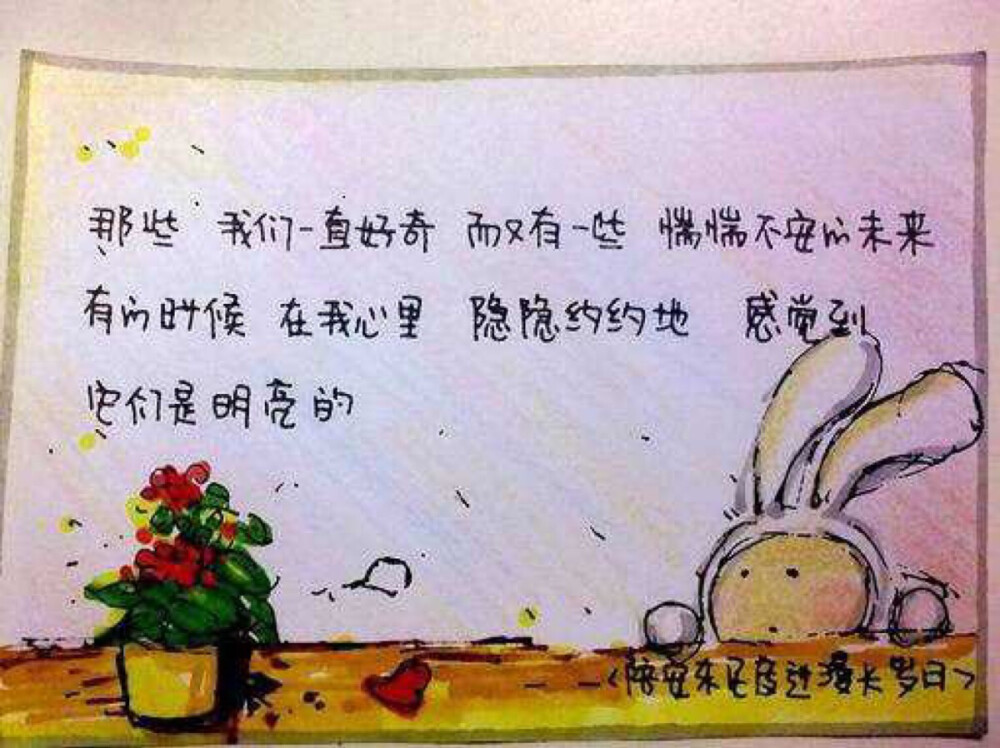 那些 我们一直好奇 而又有一些 惴惴不安的未来
有的时候 在我心里 隐隐约约地 感觉到
它们是明亮的
——<陪安东尼度过漫长岁月>